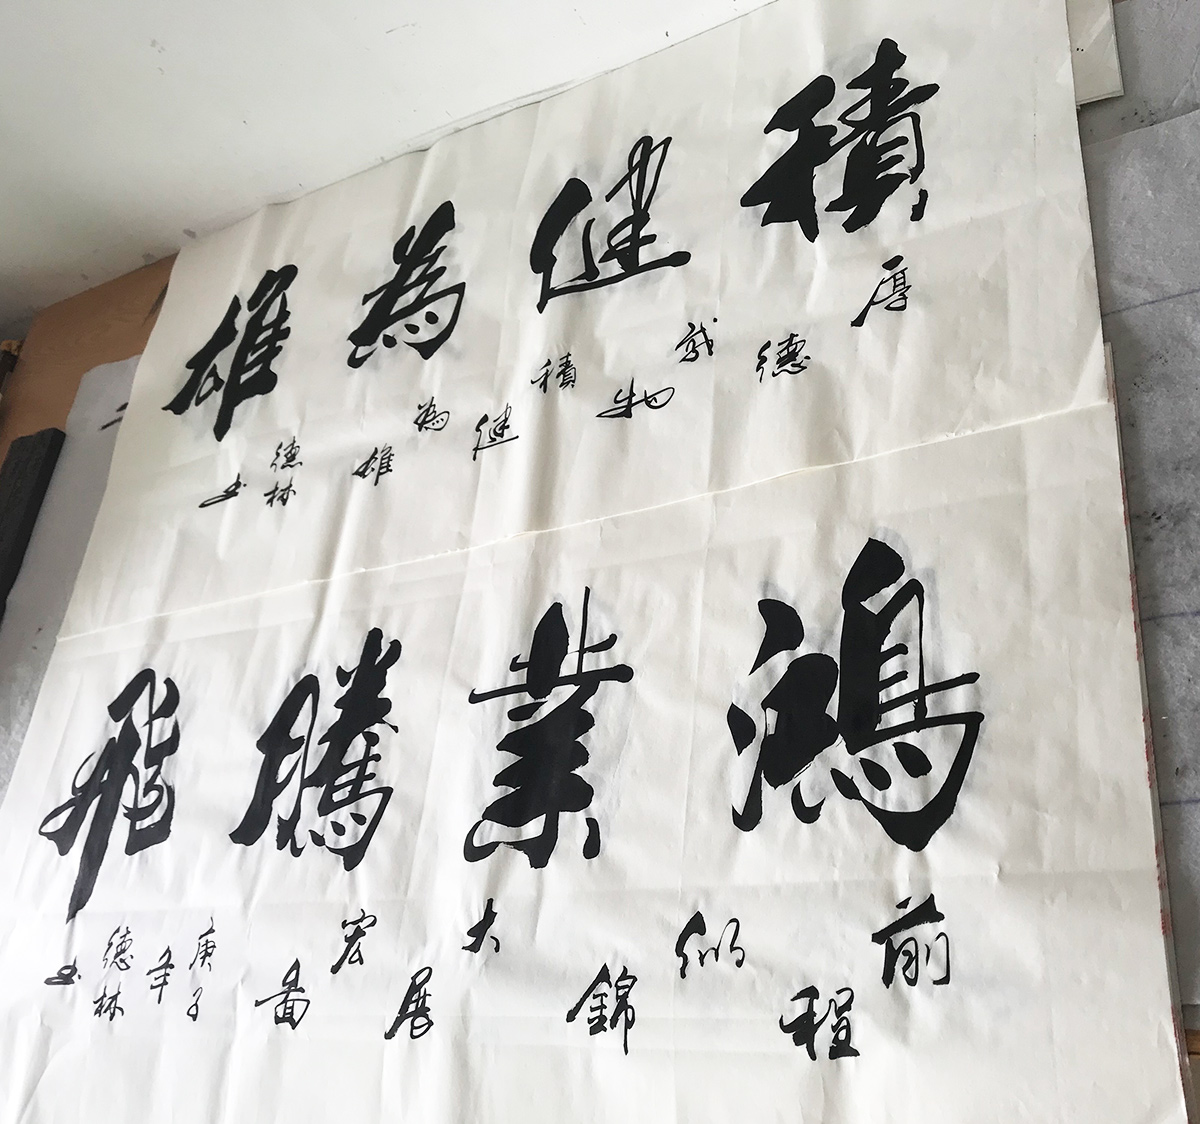 積健為雄
厚德載物積健為雄
德林書
鴻業騰飛
前程似錦大展宏圖
庚子年德林書